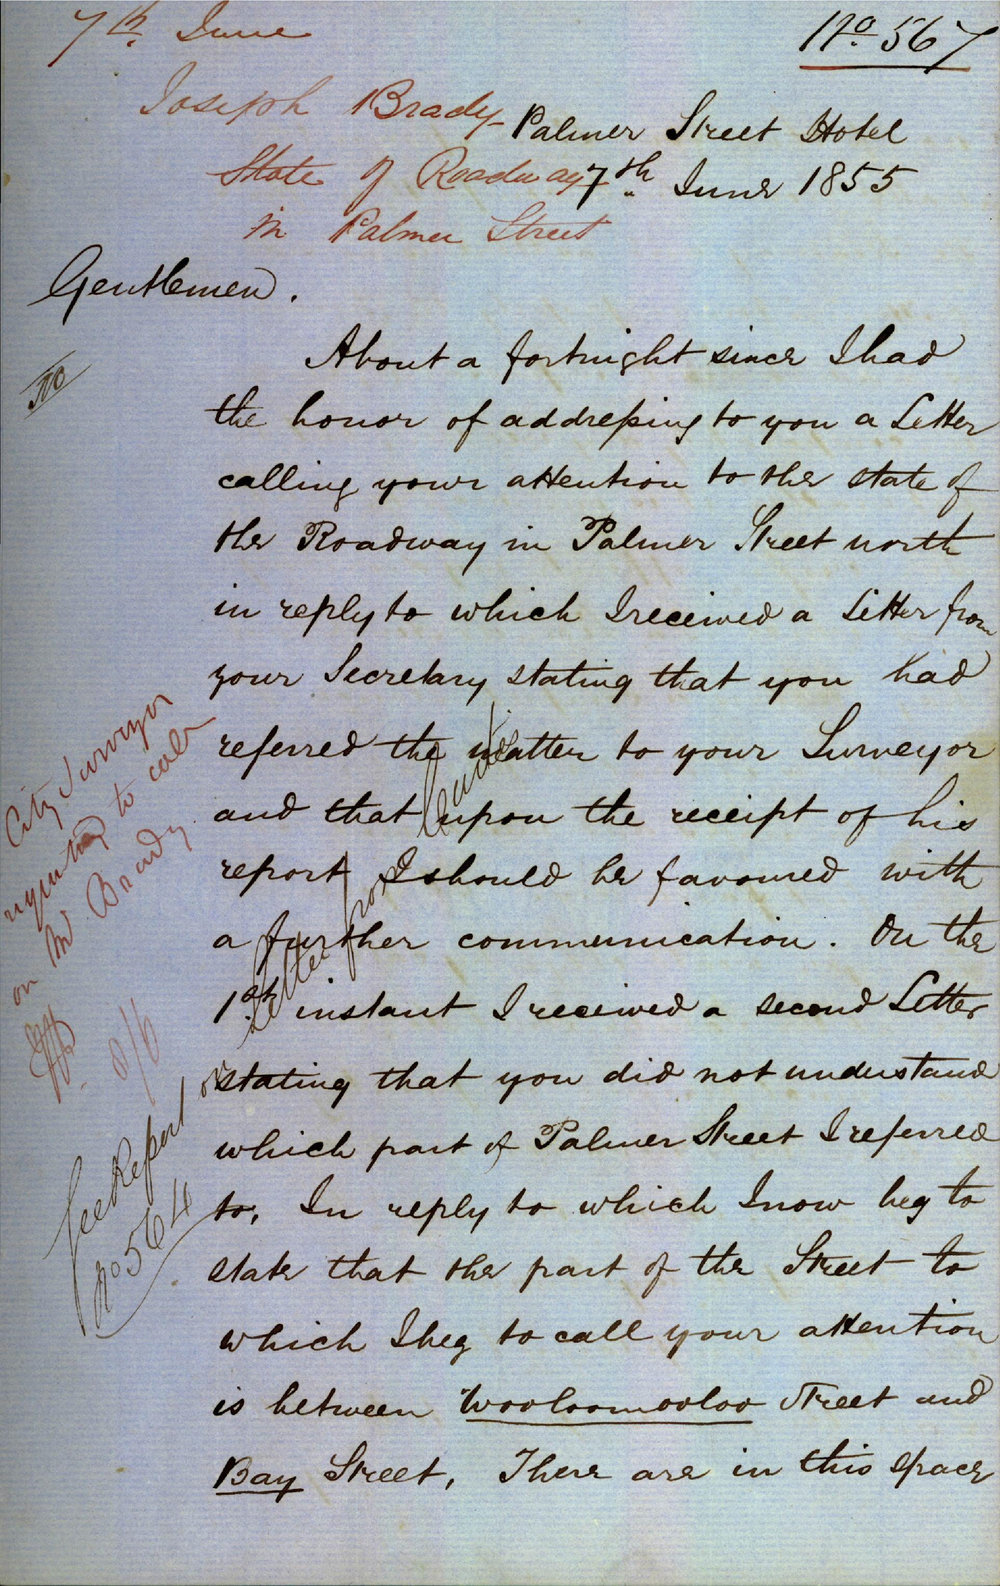 7th June
No. 567
Joseph Brady
Palmer Street Hotel
State of Roadway
7th June 1855
in Palmer Street
Gentlemen.
About a fortnight since I had
the honor of addressing to you a Letter
calling your attention to the state of
the Roadway in Palmer Street north
in reply to which I received a Letter from
your Secretary stating that you had
referred the matter to your Surveyor
and that upon the receipt of his
report I should be favoured with
a further communication. On the
1st instant I received a second Letter
stating that you did not understand
which part of Palmer Street I referred
to. In reply to which I now beg to
state that the part of the Street to
which I beg to call your attention
is between Wooloomooloo Street and
Bay Street. There are in this space
City Surveyor
requested to call
on Mr Brady
8/6
See Report on
Letter from
No 564